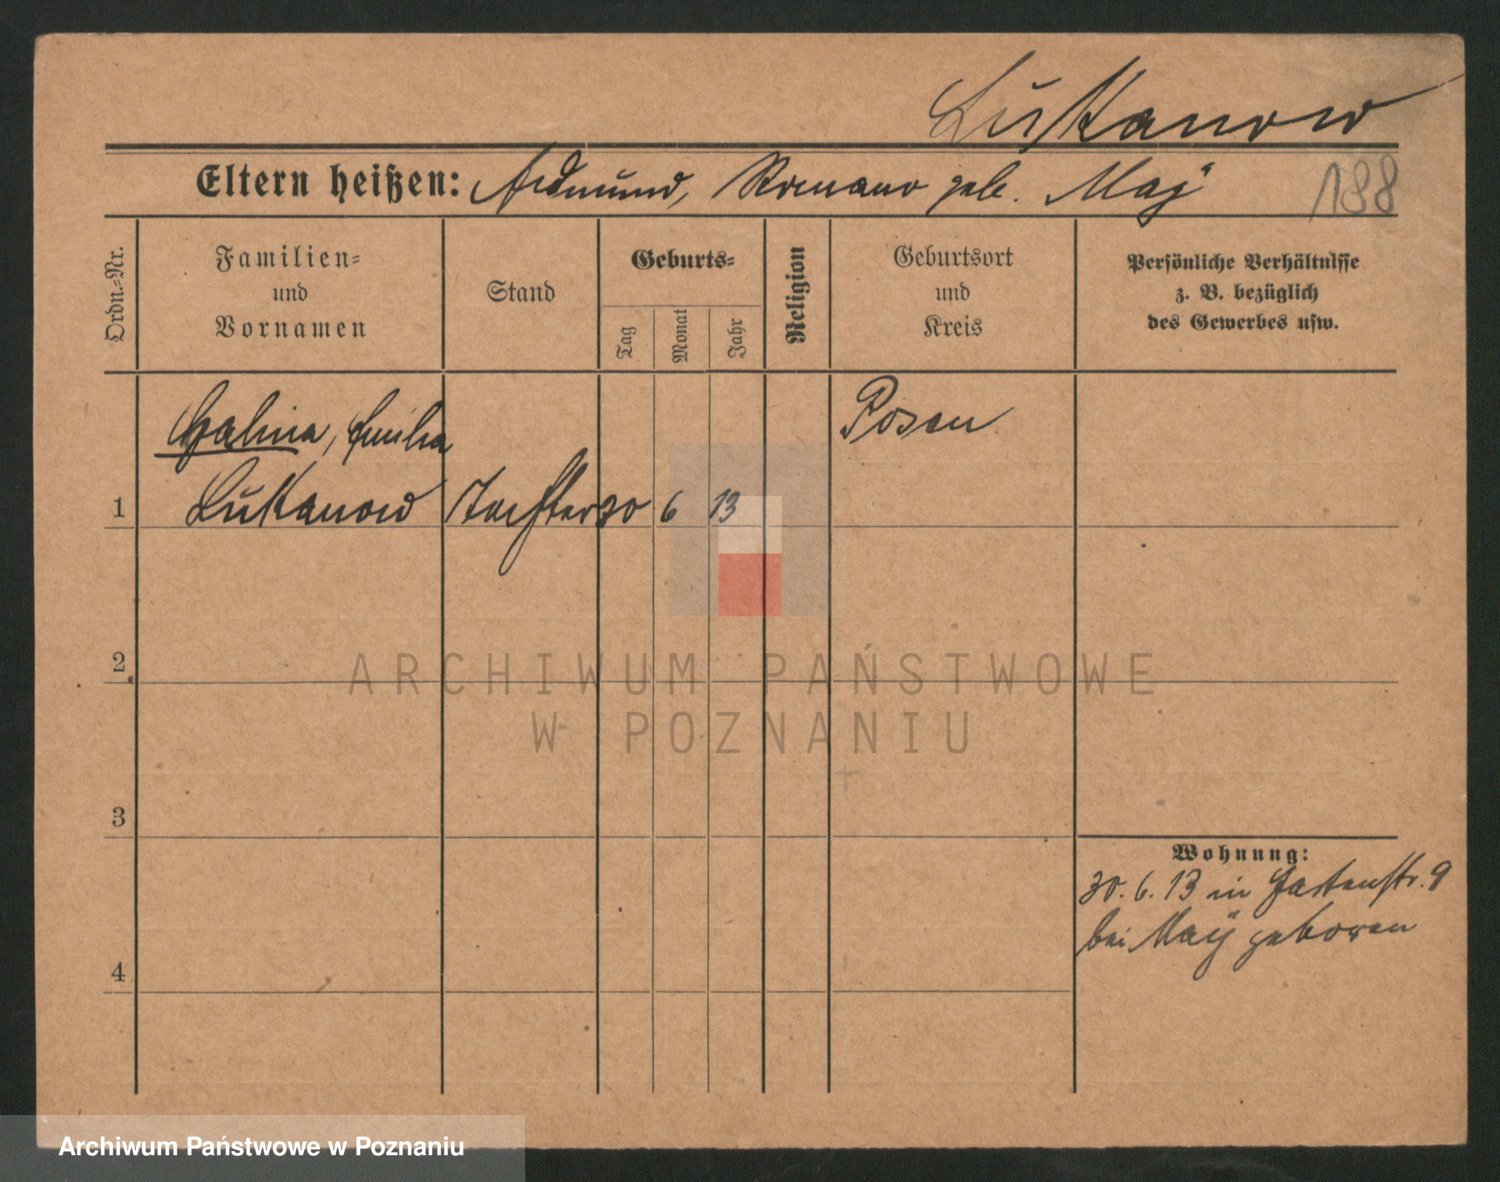 Lukanow
Eltern heißen: Romana geb. May
188
Ordn.-Nr.
Familien-
und
Vornamen
Stand
Geburts-
Tag
Monat
Jahr
Religion
Geburtsort
und
Kreis
Persönliche Verhältnisse
z. B. bezüglich
des Gewerbes usw.
Halina, Emilia
Posen
1 Lukanow Tochter 30 6 13
2
3
4
Wohnung:
30. 6. 13 in Gartenstr. 9
bei May geboren
ARCHIWUM PAŃSTWOWE
W POZNANIU
Archiwum Państwowe w Poznaniu